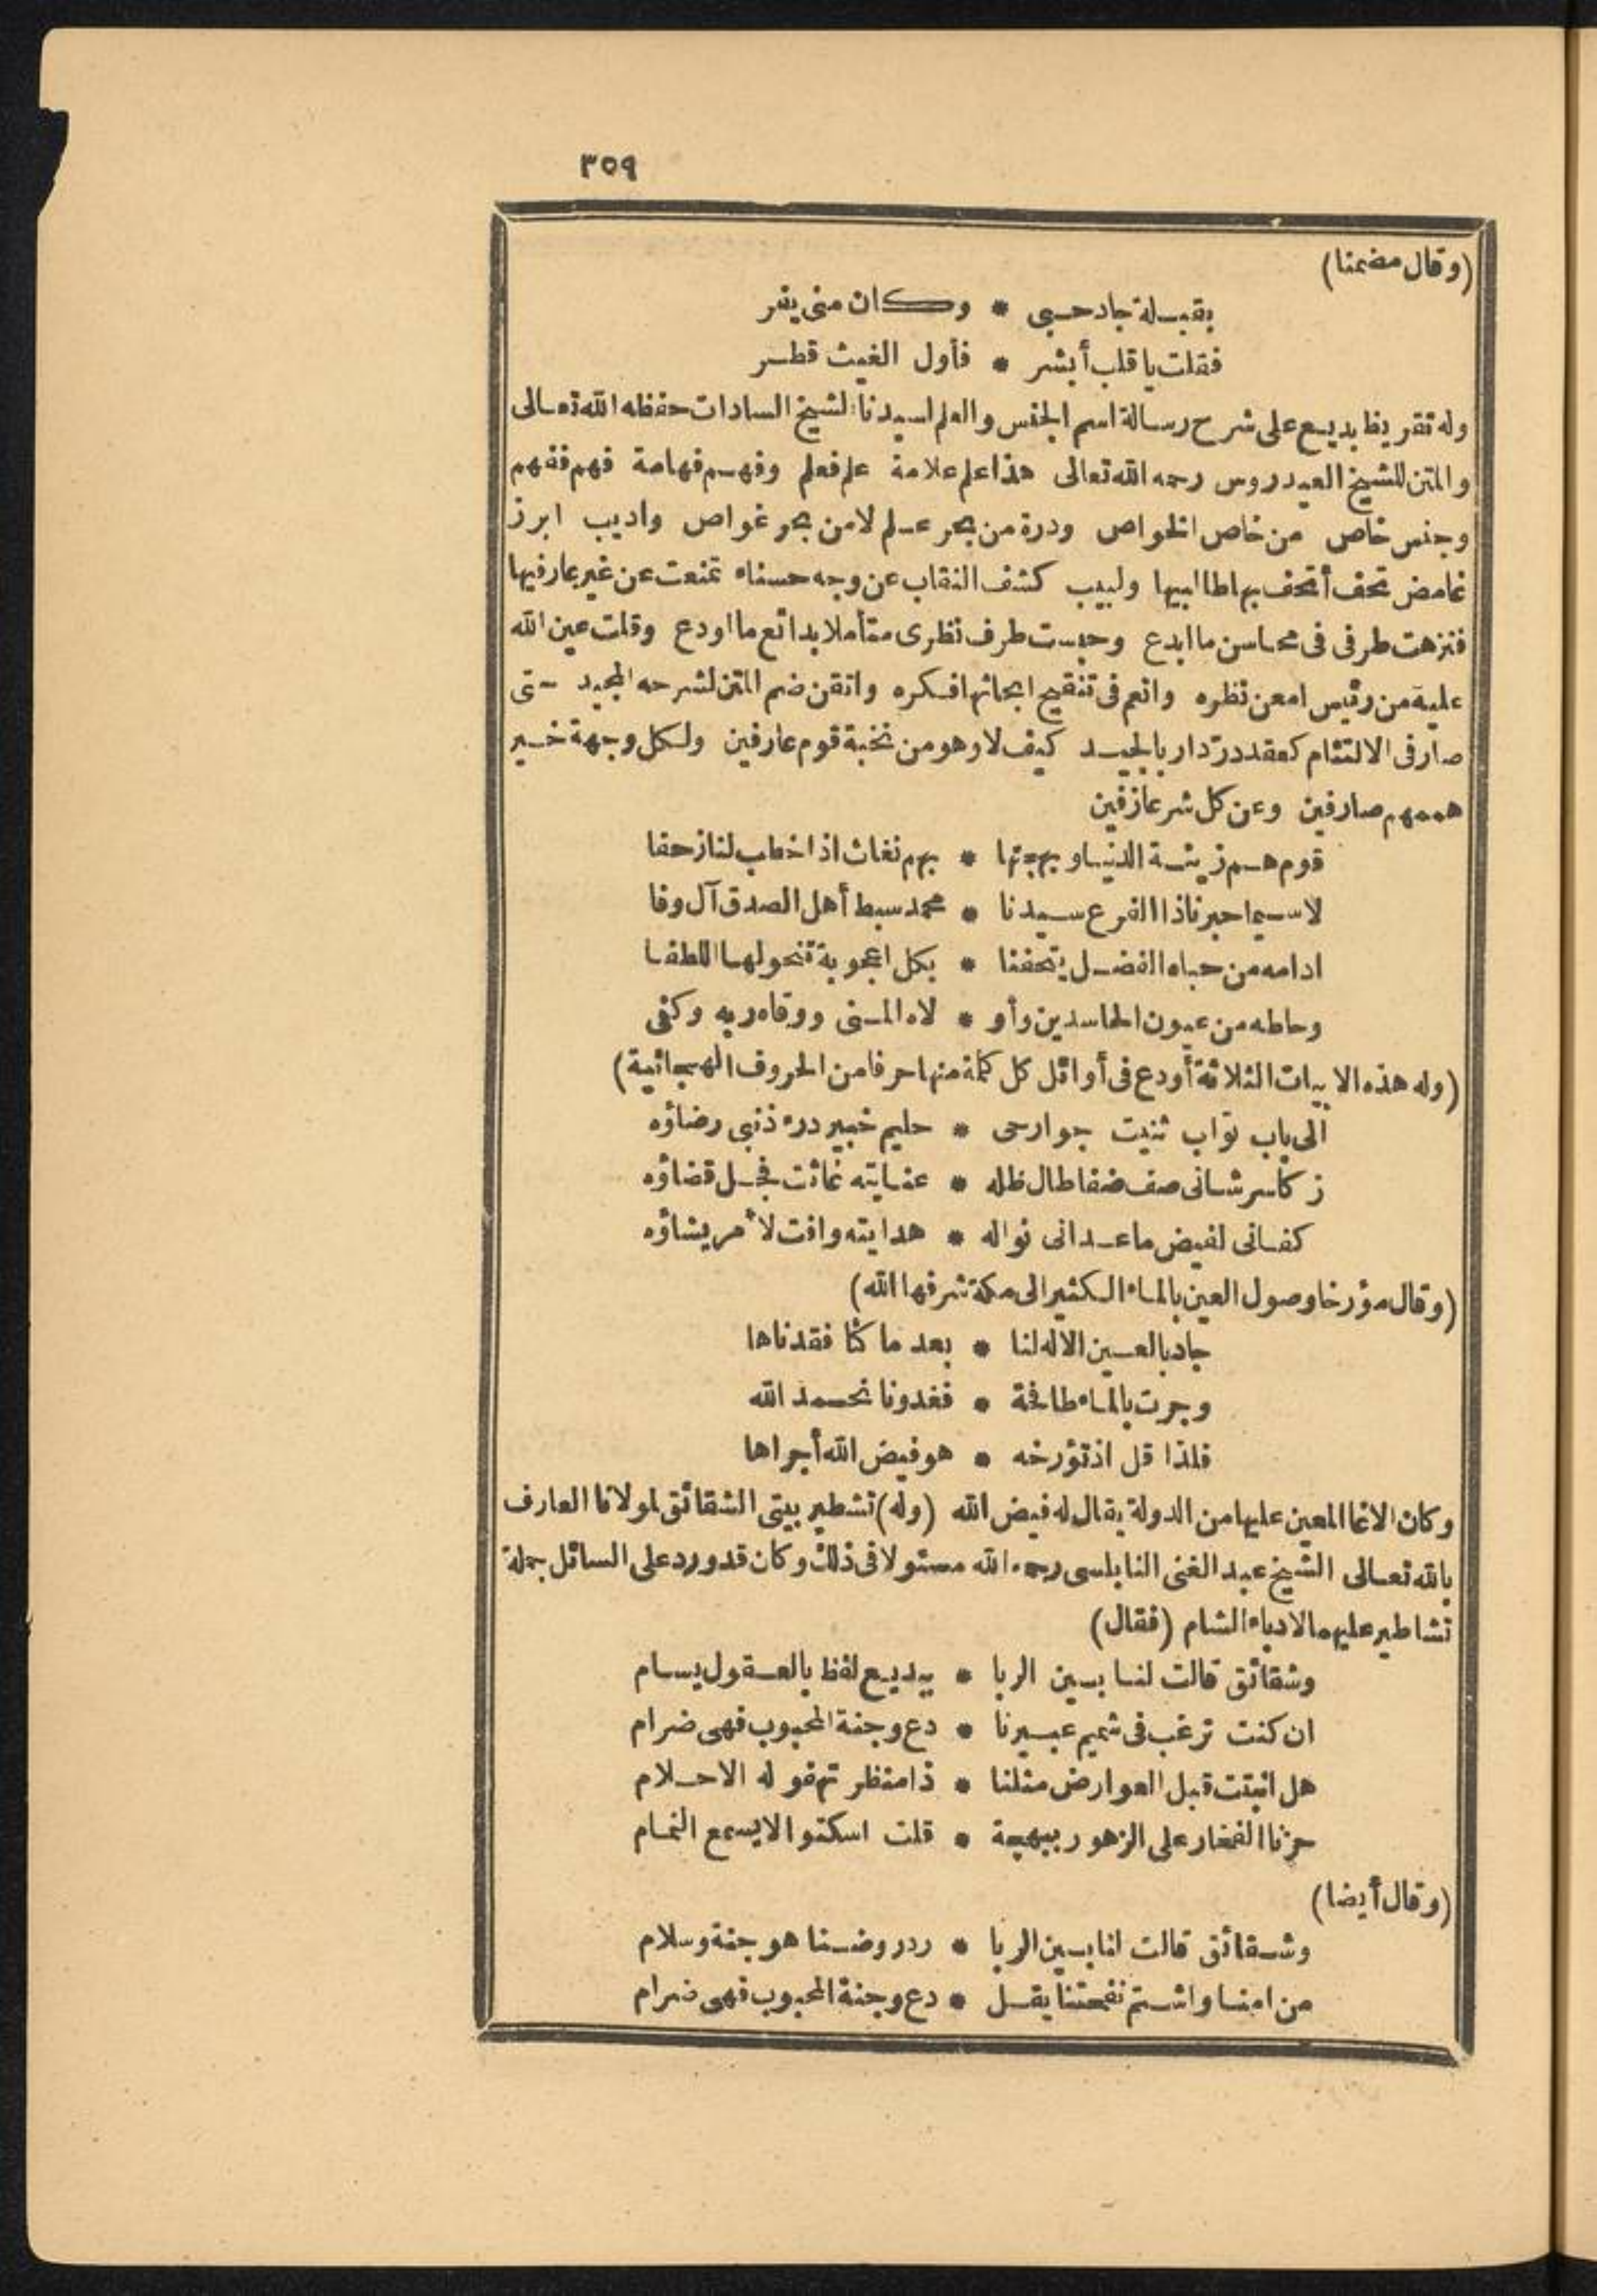 ٣٥٩
(وقال مضمنا)
بقبلة جاد حبي * وكان مني يفر
فقلت يا قلب أبشر * فأول الغيث قطر
وله تقريظ بديع على شرح رسالة اسم الجنس والعلم لسيدنا الشيخ السادات حفظه الله تعالى
والمتن للشيخ العيدروس رحمه الله تعالى هذا علم علامة علم فعلم وفهم فهامة فهم ففهم
وجنس خاص من خاص الخواص ودرة من بحر علم لا من بحر غواص واديب ابرز
غامض تحف أتحف بها طالبيها ولبيب كشف النقاب عن وجه حسناء تمنعت عن غير عارفيها
فنزهت طرفى فى محاسن ما ابدع وحبست طرف نظرى متأملا بدائع ما اودع وقلت عين الله
عليه من رئيس امعن نظره وانعم فى تنقيح ابحاثها فكره واتقن ضم المتن لشرحه المجيد حتى
صار فى الالتئام كعقد درّ دار بالجيد كيف لا وهو من نخبة قوم عارفين ولكل وجهة خير
هممهم صارفين وعن كل شر عازفين
قوم هم زينة الدنيا وبهجتها * بهم نغاث اذا خطب لنا زحفا
لا سيما حبرنا ذا الفرع سيدنا * محمد سبط أهل الصدق آل وفا
ادامه من حباه الفضل يتحفنا * بكل اعجوبة تنحو لها اللطفا
وحاطه من عيون الحاسدين وأو * لاه المنى ووقاه ربه وكفى
(وله هذه الابيات الثلاثة أودع فى أوائل كل كلمة منها حرفا من الحروف الهجائية)
الى باب توّاب ثنيت جوارحى * حليم خبير درء ذنبى رضاؤه
زكا سر شانى صف ضفا طال ظله * عنايته غاثت فجل قضاؤه
كفانى لفيض ما عدانى نواله * هدايته وافت لأمر يشاؤه
(وقال مؤرخا وصول العين بالماء الكثير الى مكة شرفها الله)
جاد بالعين الاله لنا * بعد ما كنا فقدناها
وجرت بالماء طافحة * فغدونا نحمد الله
فلذا قل اذ تؤرخه * هو فيض الله أجراها
وكان الاغا المعين عليها من الدولة يقال له فيض الله (وله) تشطير بيتى الشقائق لمولانا العارف
بالله تعالى الشيخ عبد الغنى النابلسى رحمه الله مسئولا فى ذلك وكان قد ورد على السائل جملة
تشاطير عليهما لادباء الشام (فقال)
وشقائق قالت لنا بين الربا * ببديع لفظ بالعقول يسام
ان كنت ترغب فى شميم عبيرنا * دع وجنة المحبوب فهى ضرام
هل انبتت قبل العوارض مثلنا * ذا منظر تهفو له الاحلام
حزنا الفخار على الزهور ببهجة * قلت اسكتوا لا يسمع النمام
(وقال أيضا)
وشقائق قالت لنا بين الربا * رد روضنا هو جنة وسلام
من امنا واشتم نفحتنا يقل * دع وجنة المحبوب فهى ضرام